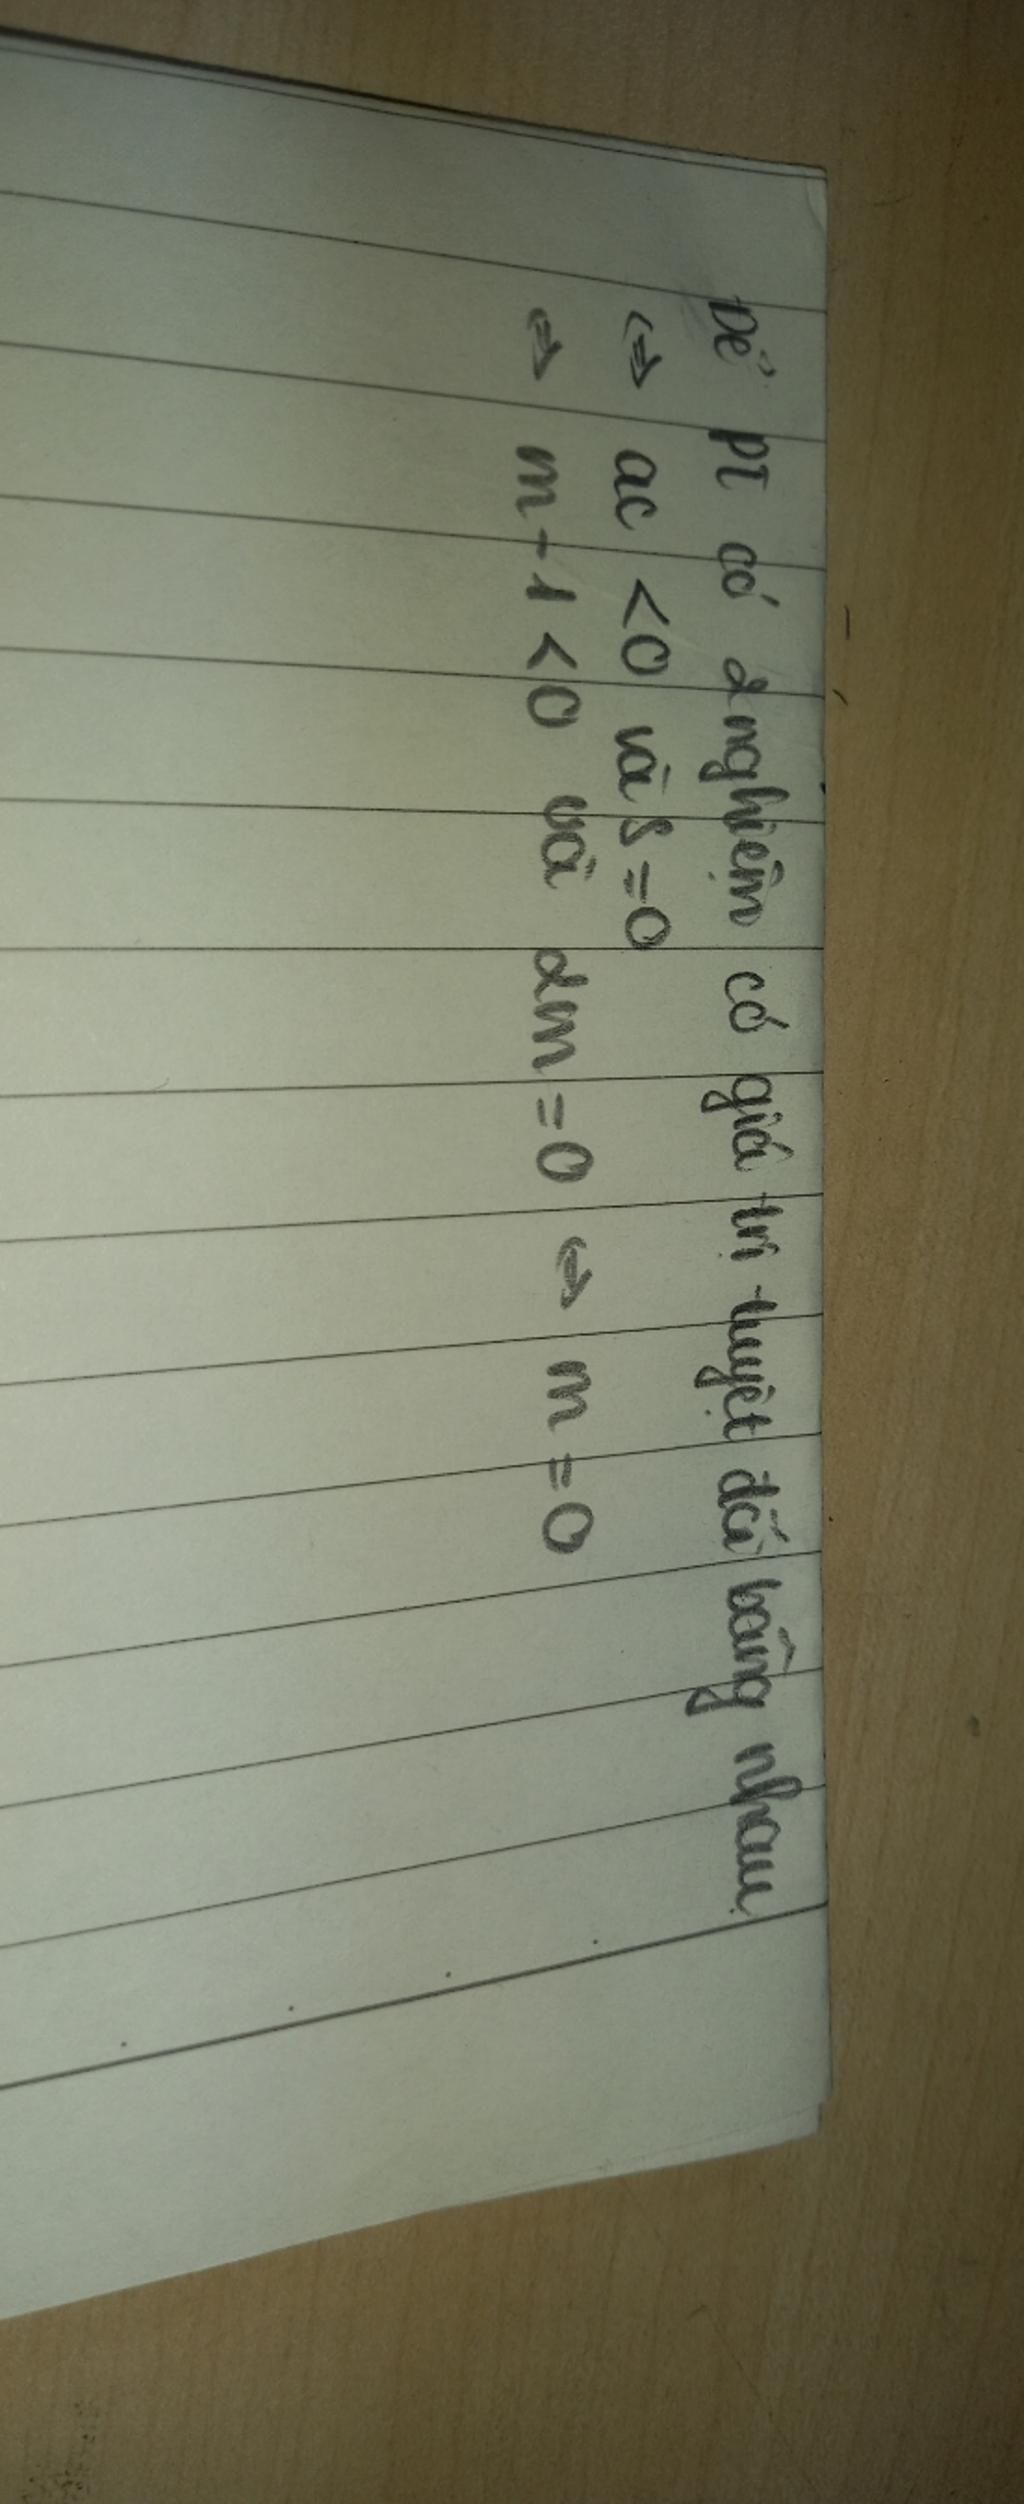 Để PT có 2 nghiệm có giá trị tuyệt đối bằng nhau
<=> ac < 0 và S = 0
<=> m - 1 < 0 và 2m = 0 <=> m = 0